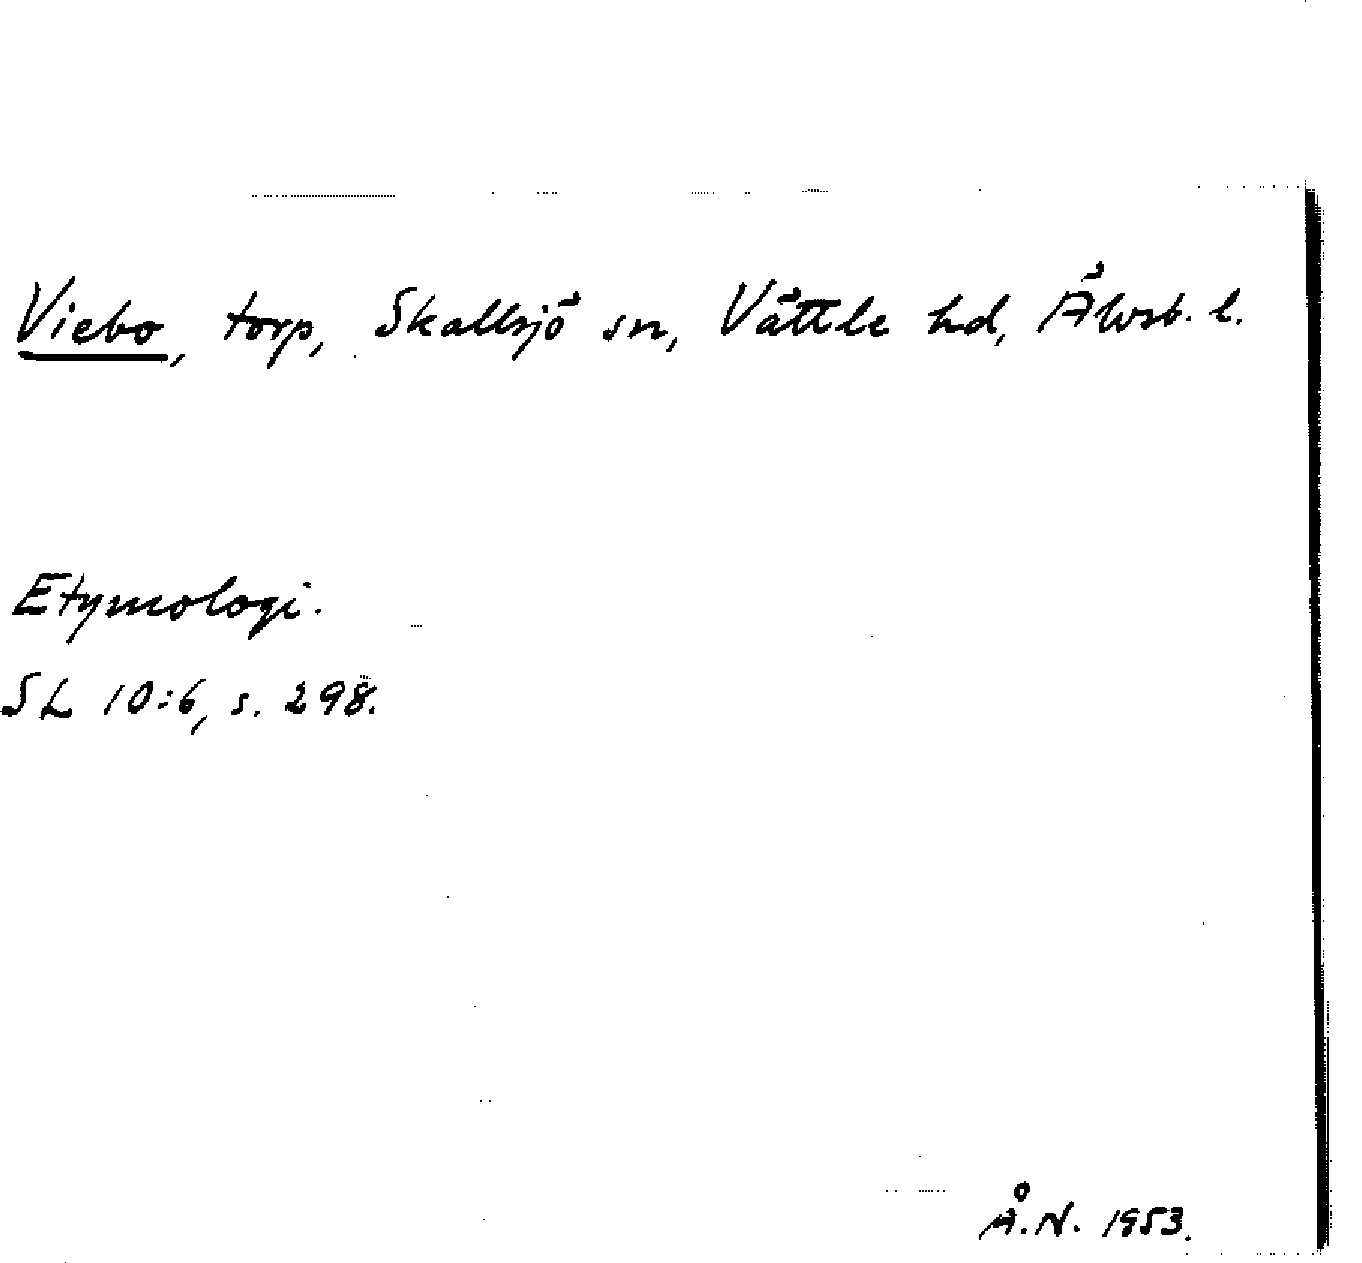 Viebo, torp, Skallsjö sn, Vättle hd, Älvsb. l.
Etymologi.
SL 10:6, s. 298.
Å.N. 1953.